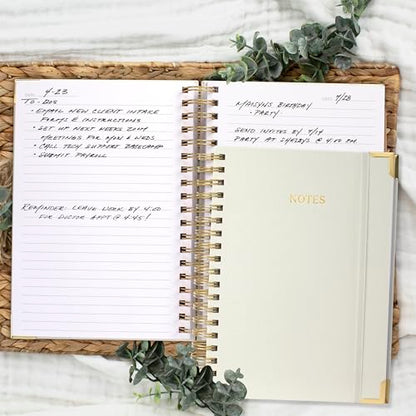 4-23
TO-DOS
• EMAIL NEW CLIENT INTAKE
FORMS & INSTRUCTIONS
• SET UP NEXT WEEKS ZOOM
MEETINGS FOR MON & WEDS.
• CALL TECH SUPPORT BASECAMP
• SUBMIT PAYROLL
REMINDER: LEAVE WORK BY 4:20
FOR DOCTOR APPT @ 4:45!
MAISYN'S BIRTHDAY
• PARTY
SEND INVITES BY
PARTY AT @ 4:00 PM
NOTES